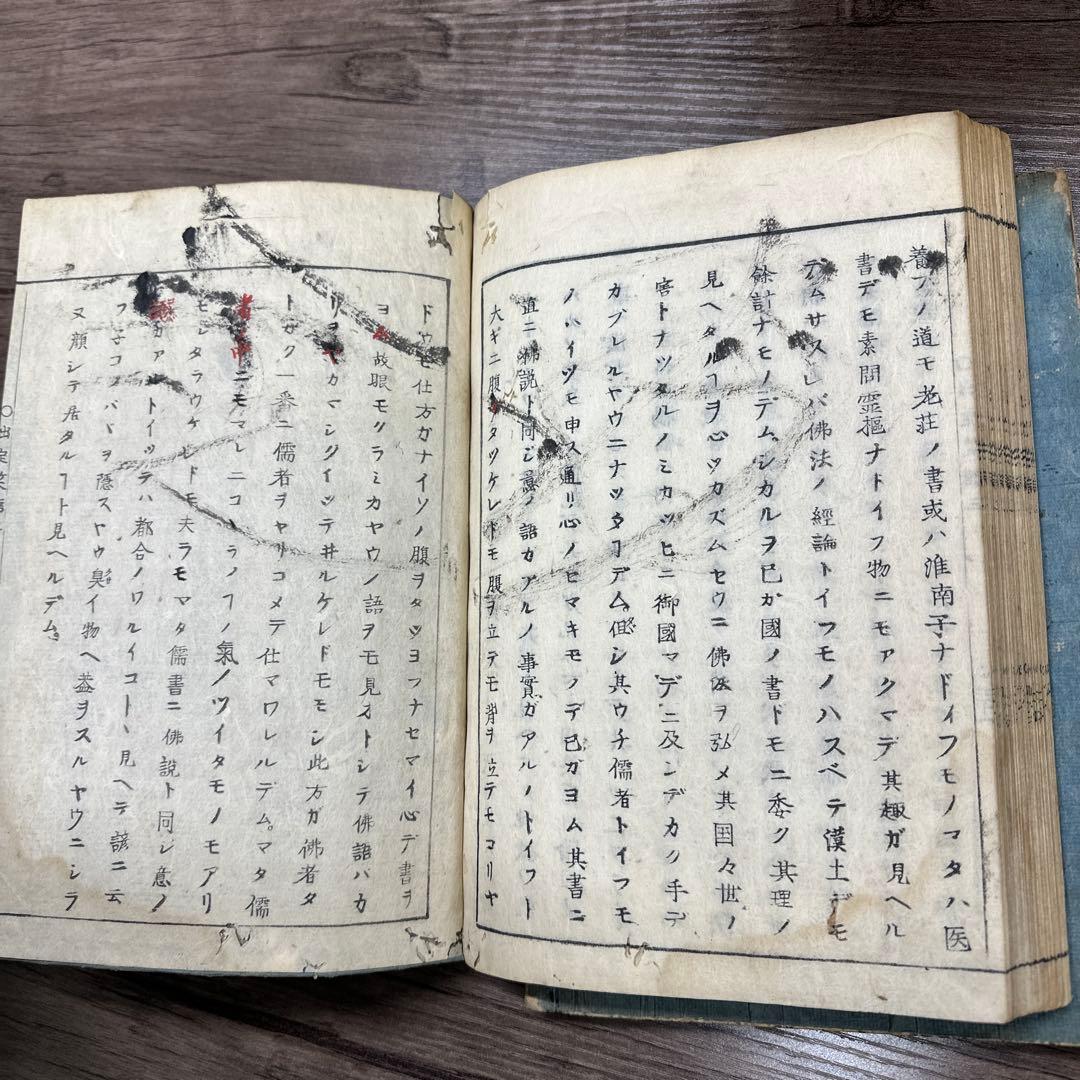 養フノ道モ老荘ノ書或ハ淮南子ナドイフモノマタハ医
書デモ素問霊樞ナドイフ物ニモアクマデ其趣ガ見ヘル
デムサスレバ佛法ノ経論トイフモノハスベテ漢土デモ
餘計ナモノデムシカルヲ己ガ國ノ書ドモニ委ク其理ノ
見ヘタルヿヲ心ツカズムセウニ佛法ヲ弘メ其国々世ノ
害トナツタルノミカツヒニ御國マデニ及ンデカク手デ
カブレルヤウニナツタヿデム但シ其ウチ儒者トイフモ
ノハイツモ申ス通リ心ノセマキモノデ己ガヨム其書ニ
直ニ佛説ト同シ意ノ語ガアルノ事實ガアルノトイフト
大ギニ腹ヲタツケレドモ腹ヲ立テモ背ヲ立テモコリヤ
ドウモ仕方ガナイソノ腹ヲタツヨフナセマイ心デ書ヲ
ヨ故眼モクラミカヤウノ語ヲモ見オトシテ佛語バカ
リヲヤカマシクイツテ井ルケレドモモシ此方ガ佛者タ
トカク一番ニ儒者ヲヤリコメテ仕マワレルデム。マタ儒
者ノ中ニモマレニコヽラノフノ氣ノツイタモノモアリ
モシタラウケレドモ夫ラモマタ儒書ニ佛説ト同シ意ノ
カアトイツテハ都合ノワルイコトヽ見ヘテ諺ニ云
フ子コノバヾヲ隠ストウ臭イ物ヘ蓋ヲスルヤウニシラ
ヌ顔シテ居タルヿト見ヘルデム。
〇出定笑語